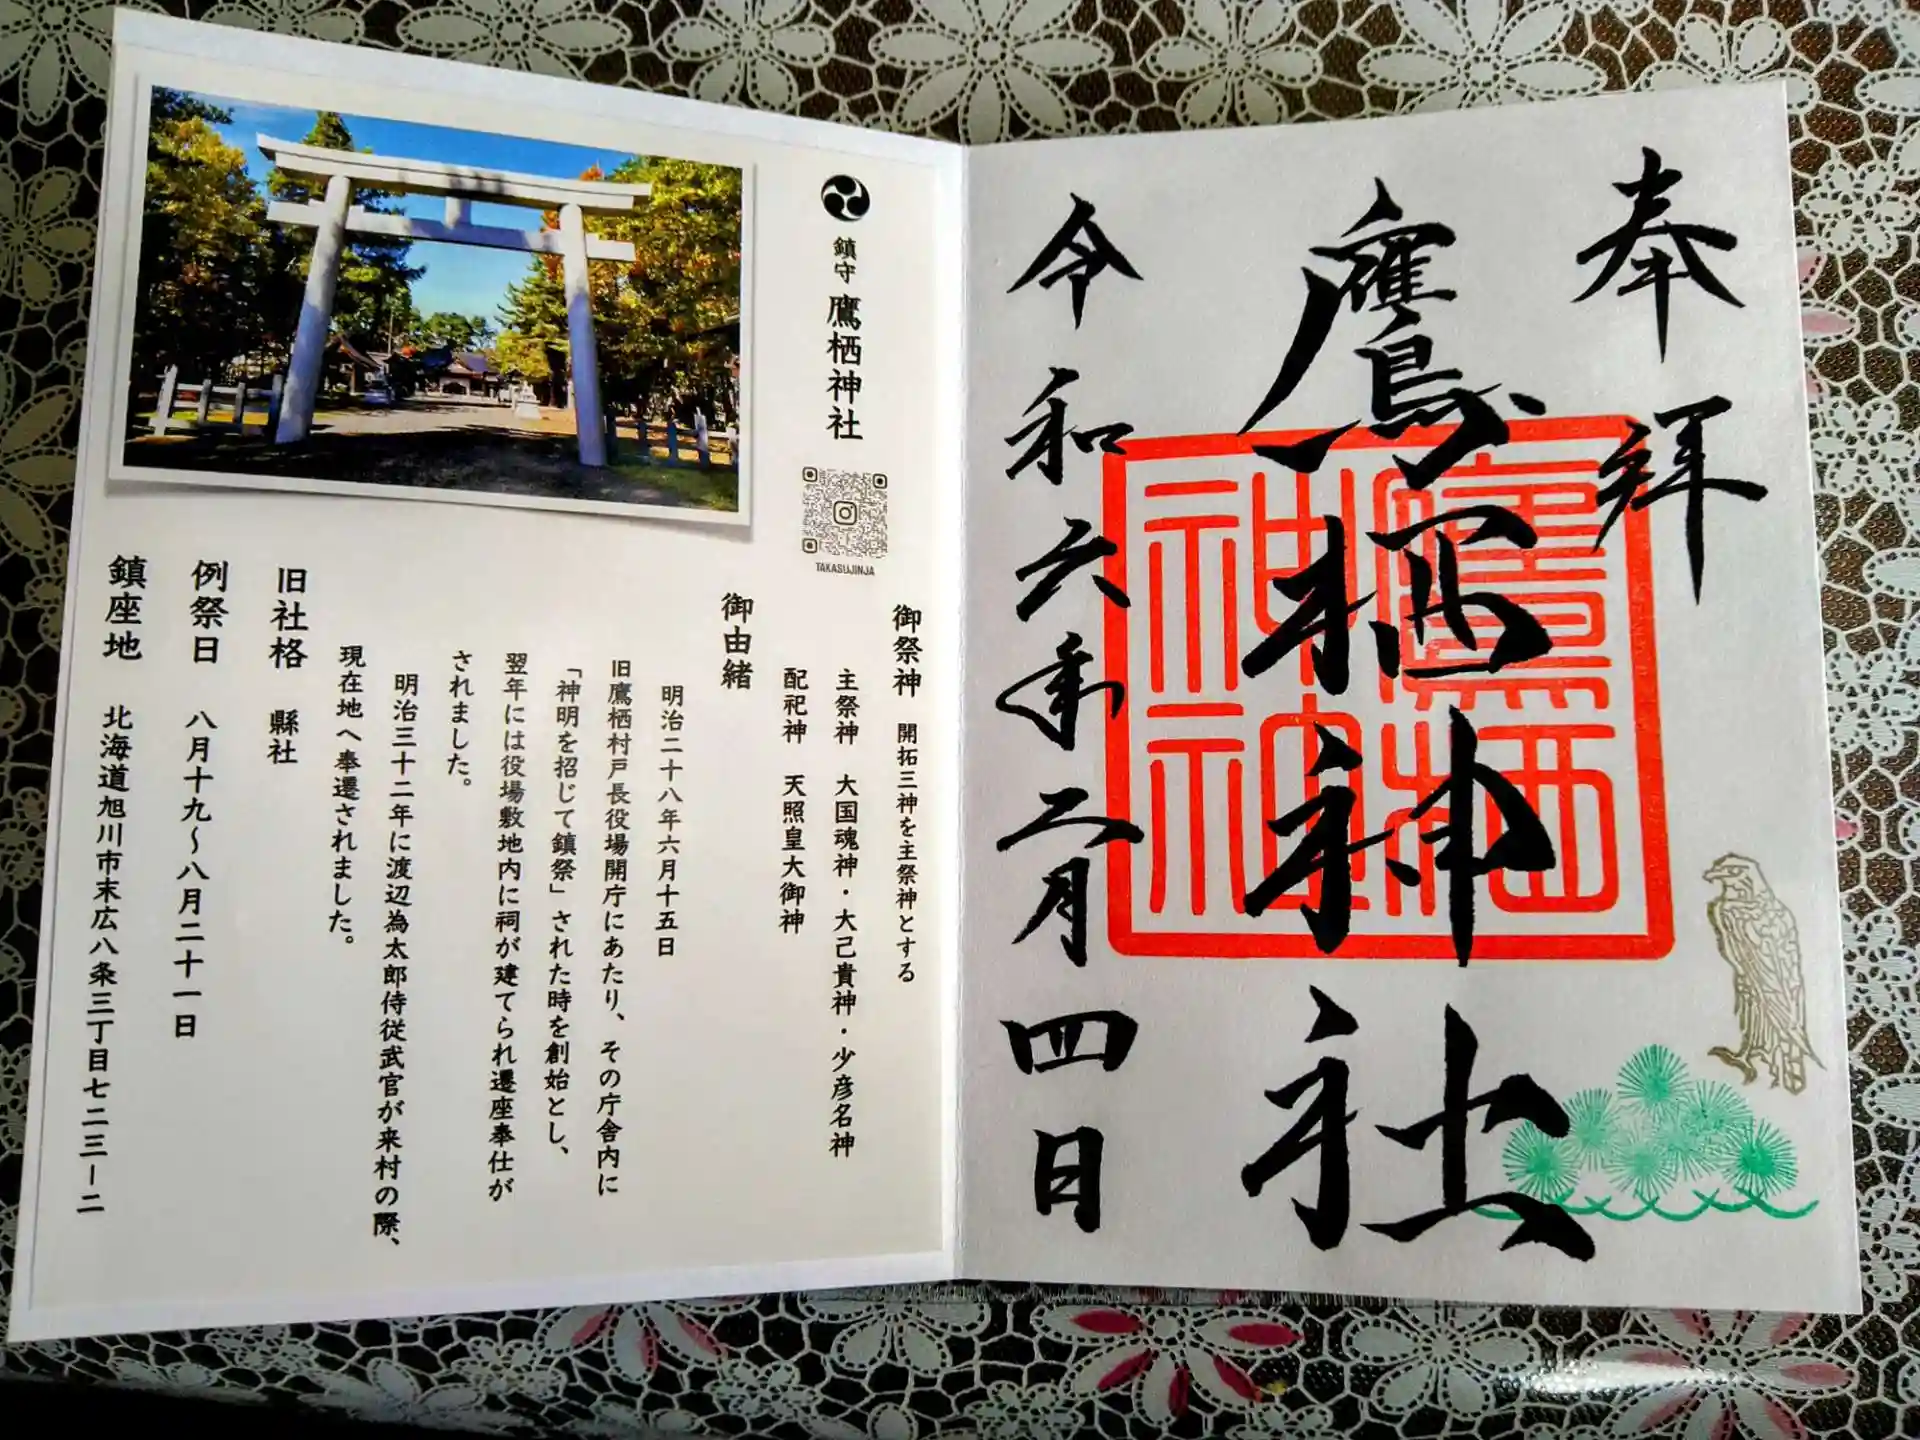 奉拝
鷹栖神社
令和六年二月四日
鷹栖
神社
鎮守 鷹栖神社
TAKASUJINJA
御祭神 開拓三神を主祭神とする
主祭神 大国魂神・大己貴神・少彦名神
配祀神 天照皇大御神
御由緒
明治二十八年六月十五日
旧鷹栖村戸長役場開庁にあたり、その庁舎内に
「神明を招じて鎮祭」された時を創始とし、
翌年には役場敷地内に祠が建てられ遷座奉仕が
されました。
明治三十二年に渡辺為太郎侍従武官が来村の際、
現在地へ奉遷されました。
旧社格 縣社
例祭日 八月十九～八月二十一日
鎮座地 北海道旭川市末広八条三丁目七二三－二